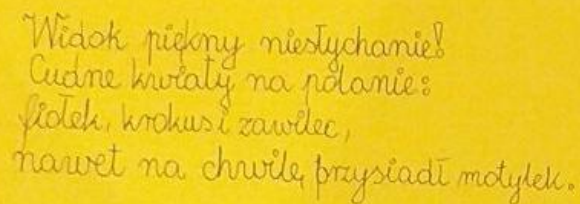 Widok piękny niesłychanie!
Cudne kwiaty na polanie:
fiołek, krokus i zawilec,
nawet na chwilę przysiadł motylek.